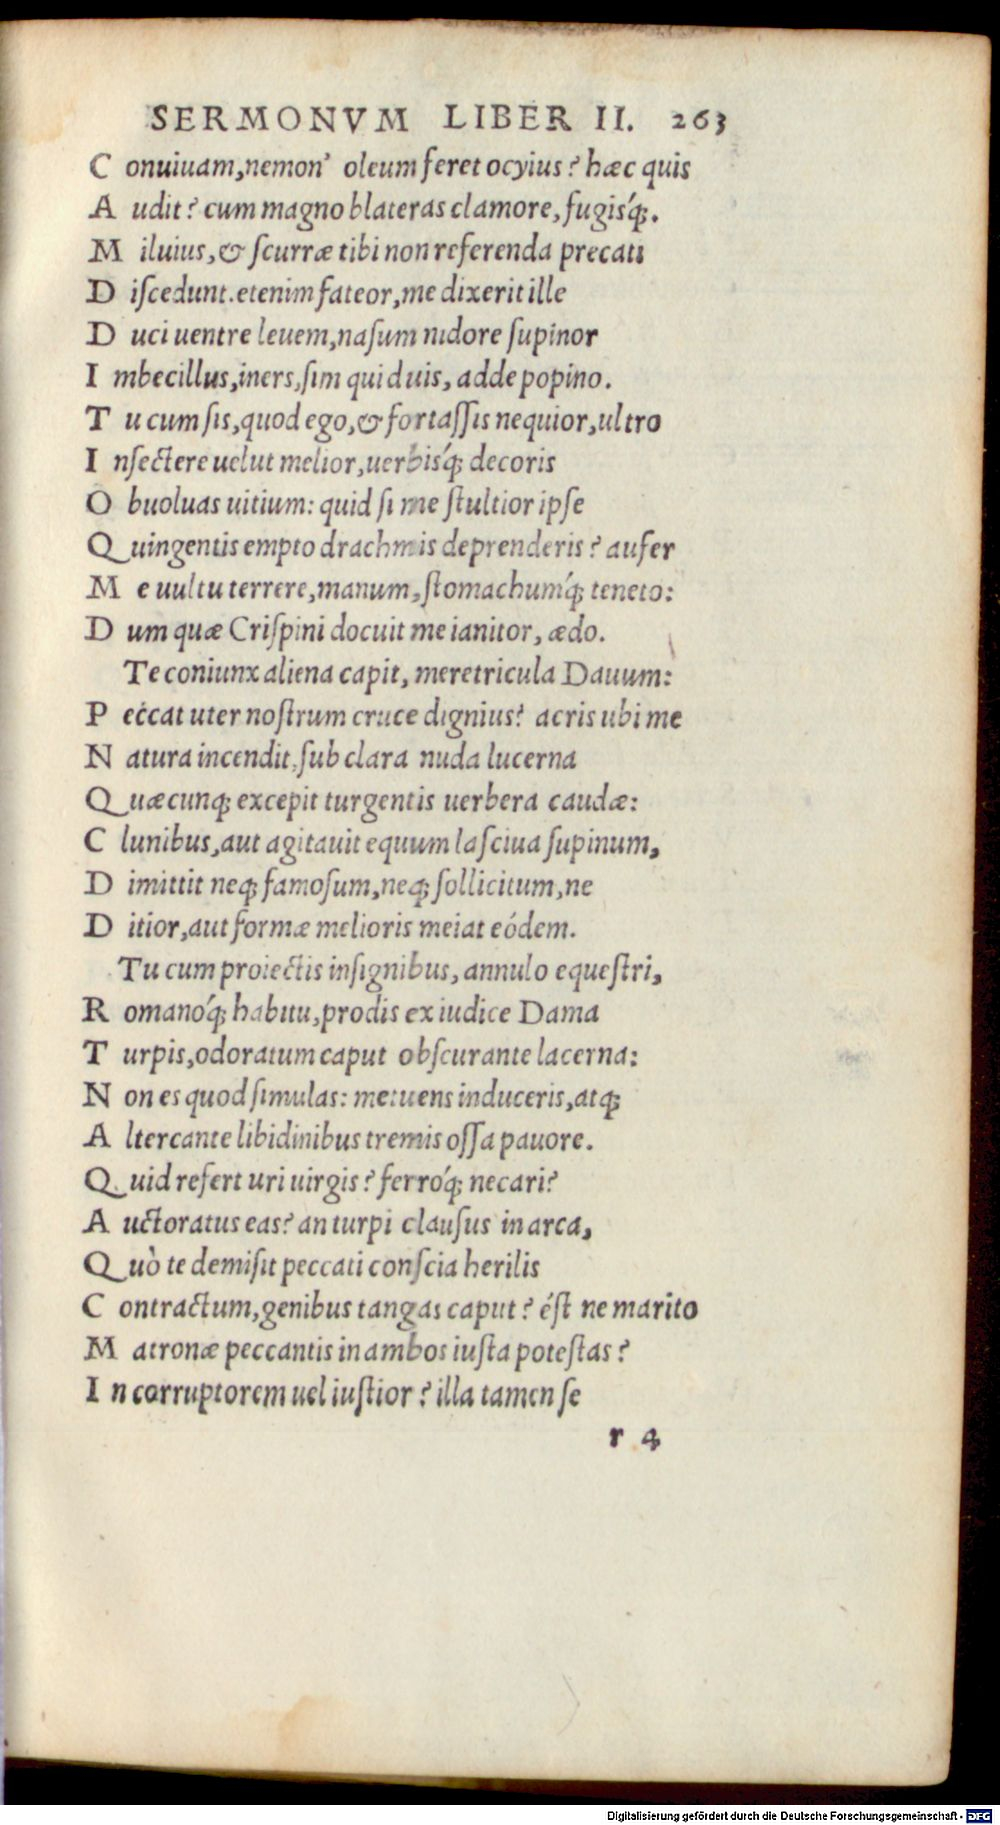 SERMONVM LIBER II. 263
C onuiuam,nemon' oleum feret ocyius? hæc quis
A udit? cum magno blateras clamore, fugisq́;.
M iluius,& ſcurræ tibi non referenda precati
D iſcedunt.etenim fateor,me dixerit ille
D uci uentre leuem,naſum nidore ſupinor
I mbecillus,iners,ſim quid uis, adde popino.
T u cum ſis,quod ego,& fortaſſis nequior,ultro
I nſectere uelut melior,uerbisq́; decoris
O buoluas uitium: quid ſi me ſtultior ipſe
Q uingentis empto drachmis deprenderis? aufer
M e uultu terrere,manum,ſtomachumq́; teneto:
D um quæ Criſpini docuit me ianitor, ædo.
Te coniunx aliena capit, meretricula Dauum:
P eccat uter noſtrum cruce dignius? acris ubi me
N atura incendit,ſub clara nuda lucerna
Q uæcunq; excepit turgentis uerbera caudæ:
C lunibus,aut agitauit equum laſciua ſupinum,
D imittit neq; famoſum,neq; ſollicitum,ne
D itior,aut formæ melioris meiat eódem.
Tu cum proiectis inſignibus, annulo equeſtri,
R omanoq́; habitu,prodis ex iudice Dama
T urpis,odoratum caput obſcurante lacerna:
N on es quod ſimulas: metuens induceris,atq;
A ltercante libidinibus tremis oſſa pauore.
Q uid refert uri uirgis? ferroq́; necari?
A uctoratus eas? an turpi clauſus in arca,
Q uò te demiſit peccati conſcia herilis
C ontractum,genibus tangas caput? éſt ne marito
M atronæ peccantis in ambos iuſta poteſtas?
I n corruptorem uel iuſtior? illa tamen ſe
r 4
Digitalisierung gefördert durch die Deutsche Forschungsgemeinschaft - DFG